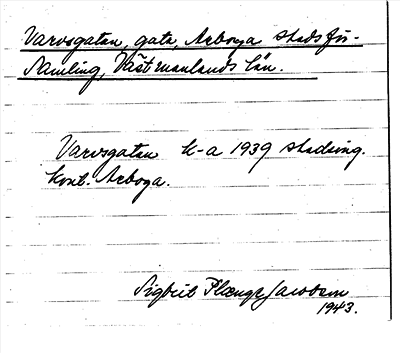 Varvsgatan, gata, Arboga stadsför-
samling, Västmanlands län.
Varvsgatan K-a 1939 stadsing.
kont. Arboga.
Sigbrit Plænge Jacobson
1943.